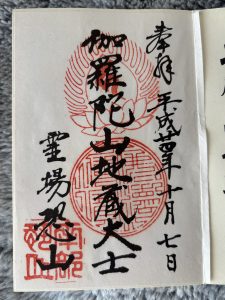 奉拝 平成廿四年十月七日
伽羅陀山地蔵大士
霊場恐山